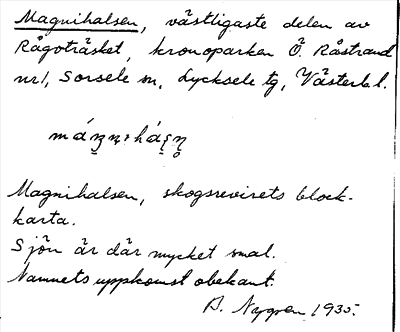 Magnihalsen, västligaste delen av
Rågoträsket, kronoparken Ö. Råstrand
nr 1, Sorsele sn, Lycksele tg, Västerb. l.
Magnihalsen, skogsrevirets block-
karta.
Sjön är där mycket smal.
Namnets uppkomst obekant.
B. Nygren 1935.